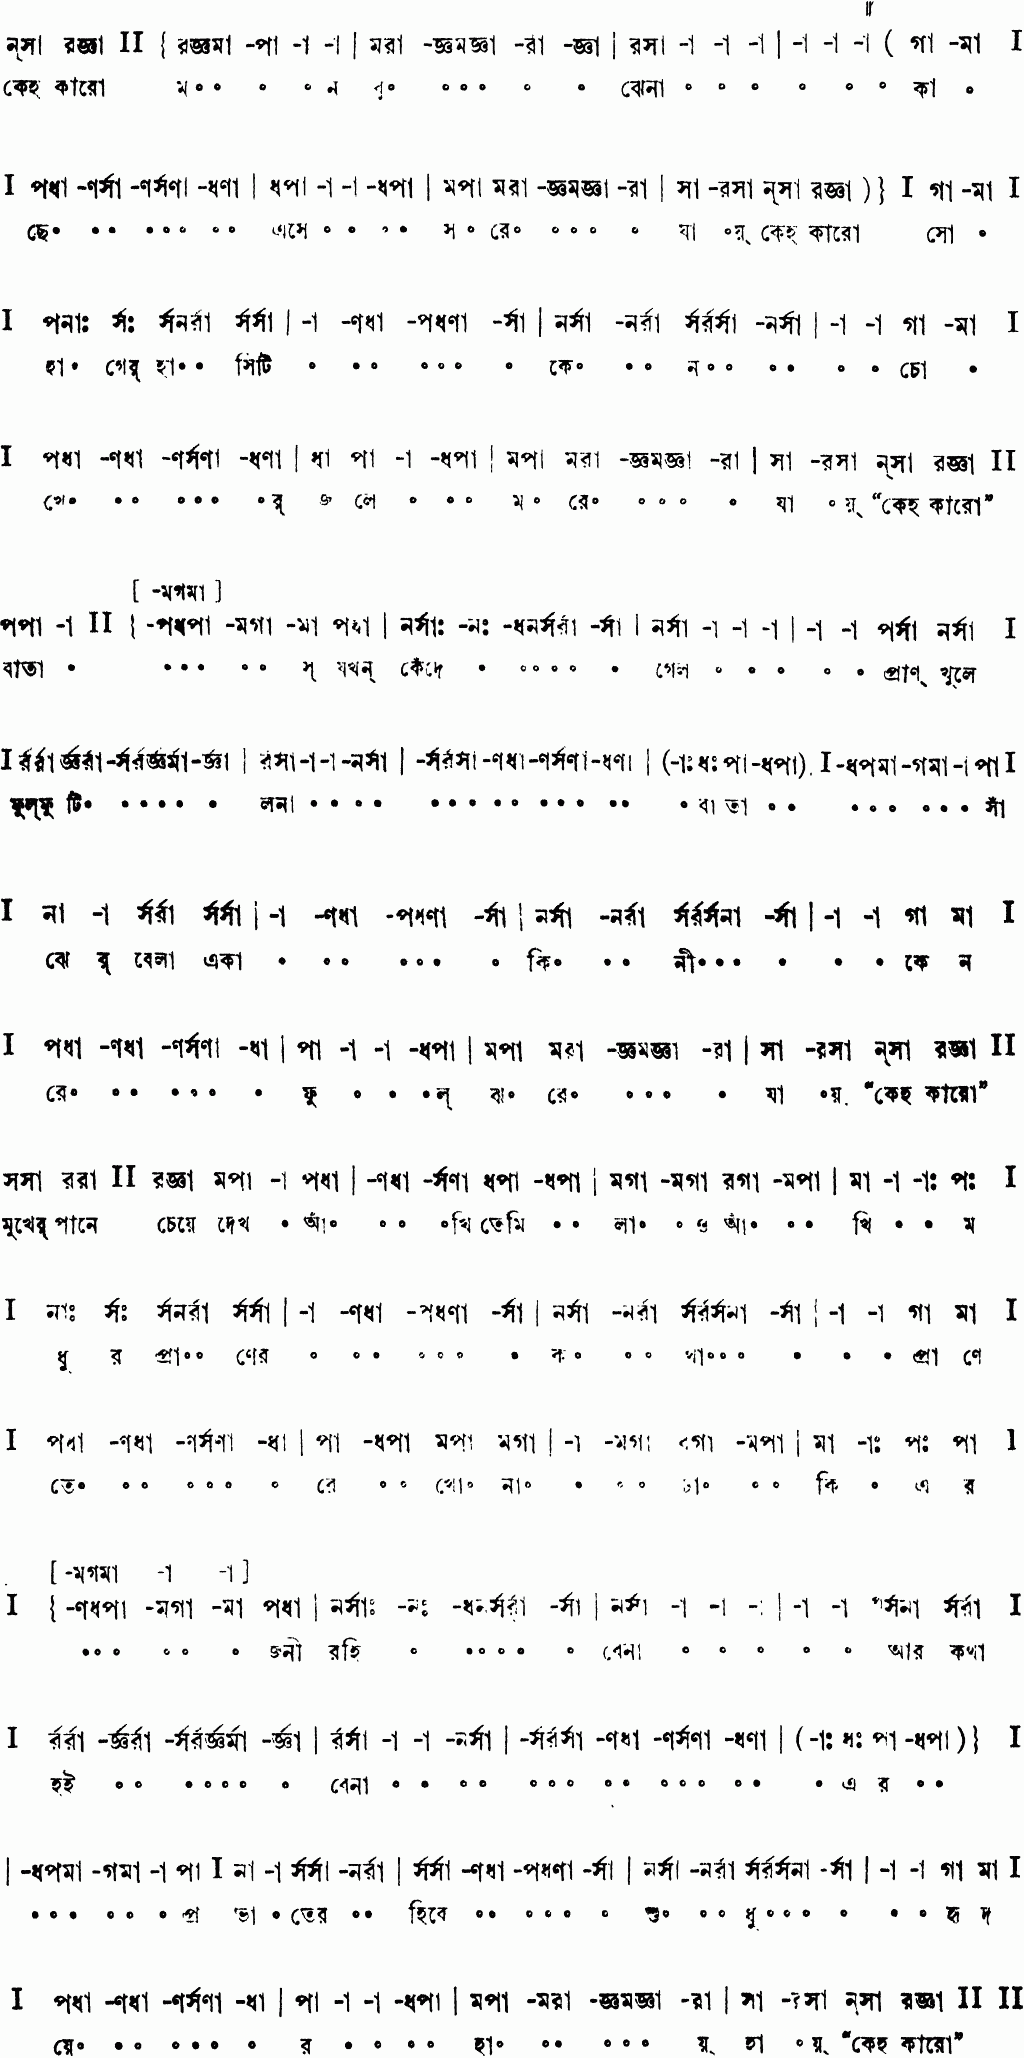 ন্‌সা রজ্ঞা II { রজ্ঞমা -পা -া -া | মরা -জ্ঞমজ্ঞা -রা -জ্ঞা | রসা -া -া -া | -া -া -া ( গা -মা I
কেহ কারো ম॰ ॰ ॰ ॰ ন বু॰ ॰॰॰ ॰ ॰ ঝেনা ॰ ॰ ॰ ॰ ॰ ॰ কা ॰
I পধা -ণর্সা -ণর্সণা -ধণা | ধপা -া -া -ধপা | মপা মরা -জ্ঞমজ্ঞা -রা | সা -রসা ন্‌সা রজ্ঞা )} I গা -মা I
ছে॰ ॰॰ ॰॰॰ ॰॰ এসে ॰ ॰ ॰॰ স॰ রে॰ ॰॰॰ ॰ যা ॰য়্ কেহ কারো সো ॰
I পনাঃ র্সঃ র্সনর্রা র্সর্সা | -া -ণধা -পধণা -র্সা | নর্সা -নর্রা র্সর্রর্সা -নর্সা | -া -া গা -মা I
হা॰ গের্ হা॰॰ সিটি ॰ ॰॰ ॰॰॰ ॰ কে॰ ॰॰ ন॰॰ ॰॰ ॰ ॰ চো ॰
I পধা -ণধা -ণর্সণা -ধণা | ধা পা -া -ধপা | মপা মরা -জ্ঞমজ্ঞা -রা | সা -রসা ন্‌সা রজ্ঞা II
খে॰ ॰॰ ॰॰॰ ॰র্ জ লে ॰ ॰॰ ম॰ রে॰ ॰॰॰ ॰ যা ॰য়্ “কেহ কারো”
[ -মগমা ]
পপা -া II { -পধপা -মগা -মা পধা | নর্সাঃ -নঃ -ধনর্সর্রা -র্সা | নর্সা -া -া -া | -া -া পর্সা নর্সা I
বাতা ॰ ॰॰॰ ॰॰ স্ যখন্ কেঁদে ॰ ॰॰॰॰ ॰ গেল ॰ ॰ ॰ ॰ ॰ প্রাণ্ খুলে
I র্রর্রা র্জ্ঞর্রা -র্সর্রর্জ্ঞর্মা -র্জ্ঞা | র্রর্সা -া -া -নর্সা | -র্সর্রর্সা -ণধা -ণর্সণা -ধণা | (-াঃ ধঃ পা -ধপা). I -ধপমা -গমা -া পা I
ফুল্‌ফু টি॰ ॰॰॰॰ ॰ লনা ॰ ॰ ॰॰ ॰॰॰ ॰॰ ॰॰॰ ॰॰ ॰ বা তা ॰॰ ॰॰॰ ॰॰ ॰ সাঁ
I না -া র্সর্রা র্সর্সা | -া -ণধা -পধণা -র্সা | নর্সা -নর্রা র্সর্রর্সনা -র্সা | -া -া গা মা I
ঝে র্ বেলা একা ॰ ॰॰ ॰॰॰ ॰ কি॰ ॰॰ নী॰॰॰ ॰ ॰ ॰ কে ন
I পধা -ণধা -ণর্সণা -ধা | পা -া -া -ধপা | মপা মরা -জ্ঞমজ্ঞা -রা | সা -রসা ন্‌সা রজ্ঞা II
রে॰ ॰॰ ॰॰॰ ॰ ফু ॰ ॰ ॰ল্ ঝ॰ রে॰ ॰॰॰ ॰ যা ॰য়্ “কেহ কারো”
সসা ররা II রজ্ঞা মপা -া পধা | -ণধা -র্সণা ধপা -ধপা | মগা -মগা রগা -মপা | মা -া -াঃ পঃ I
মুখের্ পানে চেয়ে দেখ ॰ আঁ॰ ॰॰ ॰খি তেমি ॰॰ লা॰ ॰ও আঁ॰ ॰॰ খি ॰ ॰ ম
I নাঃ র্সঃ র্সনর্রা র্সর্সা | -া -ণধা -পধণা -র্সা | নর্সা -নর্রা র্সর্রর্সনা -র্সা | -া -া গা মা I
ধু র প্রা॰॰ ণের ॰ ॰॰ ॰॰॰ ॰ ক॰ ॰॰ থা॰॰॰ ॰ ॰ ॰ প্রা ণে
I পধা -ণধা -ণর্সণা -ধা | পা -ধপা মপা মগা | -া -মগা রগা -মপা | মা -াঃ পঃ পা I
তে॰ ॰॰ ॰॰॰ ॰ রে ॰॰ খো॰ না॰ ॰ ॰॰ ঢা॰ ॰॰ কি ॰ এ র
[ -মগমা -া -া ]
I { -ণধপা -মগা -মা পধা | নর্সাঃ -নঃ -ধনর্সর্রা -র্সা | নর্সা -া -া -া | -া -া পর্সনা র্সর্রা I
॰॰॰ ॰॰ ॰ জনী রহি ॰ ॰॰॰॰ ॰ বেনা ॰ ॰ ॰ ॰ ॰ আর কথা
I র্রর্রা -র্জ্ঞর্রা -র্সর্রর্জ্ঞর্মা -র্জ্ঞা | র্রর্সা -া -া -নর্সা | -র্সর্রর্সা -ণধা -ণর্সণা -ধণা | (-াঃ ধঃ পা -ধপা)} I
হই ॰॰ ॰॰॰॰ ॰ বেনা ॰ ॰ ॰॰ ॰॰॰ ॰॰ ॰॰॰ ॰॰ ॰ এ র ॰॰
| -ধপমা -গমা -া পা I না -া র্সর্সা -নর্রা | র্সর্সা -ণধা -পধণা -র্সা | নর্সা -নর্রা র্সর্রর্সনা -র্সা | -া -া গা মা I
॰॰॰ ॰॰ ॰ প্র ভা ॰ তের ॰॰ হিবে ॰॰ ॰॰॰ ॰ শু॰ ॰॰ ধু॰॰॰ ॰ ॰ ॰ হৃ দ
I পধা -ণধা -ণর্সণা -ধা | পা -া -া -ধপা | মপা -মরা -জ্ঞমজ্ঞা -রা | সা -রসা ন্‌সা রজ্ঞা II II
য়ে॰ ॰॰ ॰॰॰ ॰ র ॰ ॰ ॰॰ হা॰ ॰॰ ॰॰॰ য়্ হা ॰য়্ “কেহ কারো”